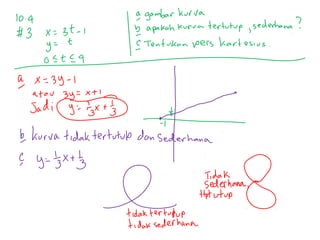 10.4
#3 x = 3t - 1
y = t
0 ≤ t ≤ 9
a gambar kurva
b apakah kurva tertutup, sederhana?
c Tentukan pers kartesius.
a x = 3y - 1
atau 3y = x + 1
Jadi y = 1/3 x + 1/3
-1
b kurva tidak tertutup dan sederhana
c y = 1/3 x + 1/3
tidak tertutup
tidak sederhana
Tidak
sederhana
tertutup